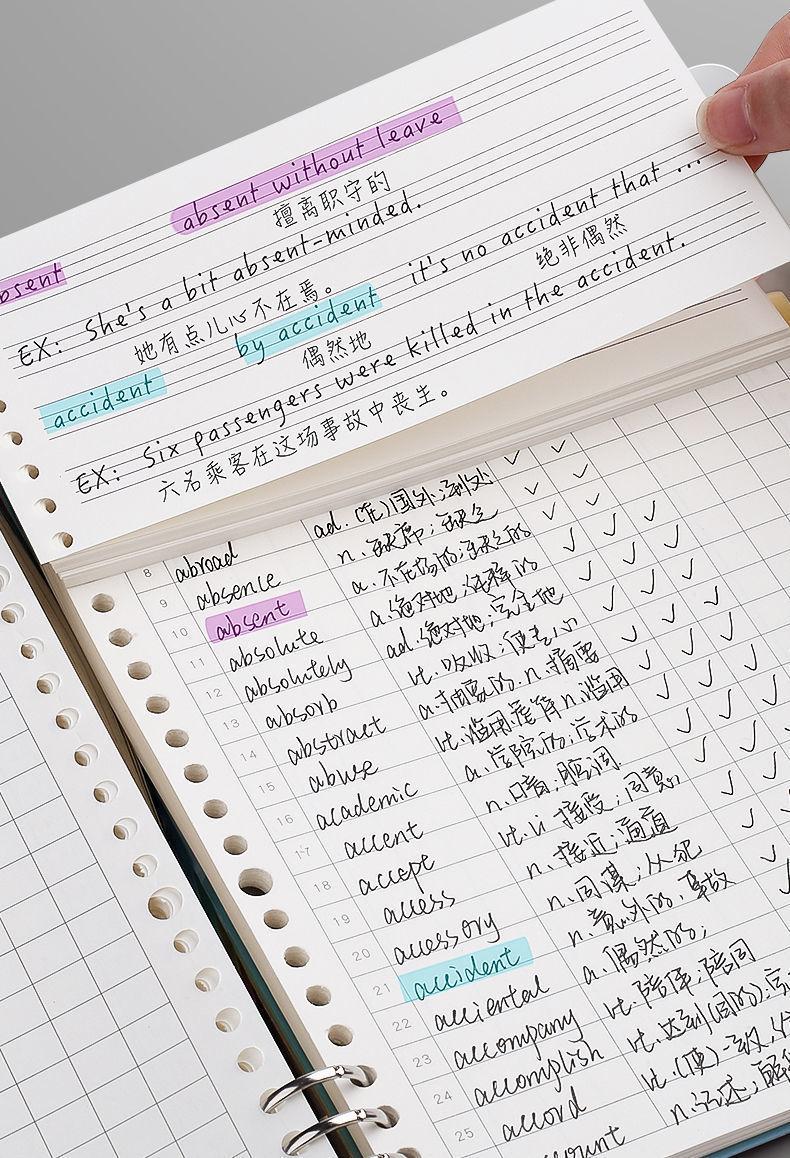 absent without leave
擅离职守的
bsent
EX: She's a bit absent-minded.
她有点儿心不在焉。
by accident it's no accident that ...
偶然地 绝非偶然
accident
EX: Six passengers were killed in the accident.
六名乘客在这场事故中丧生。
8 abroad ad.(在)国外;到处
9 absence n.缺席;缺乏
10 absent a.不在场的;缺乏的
11 absolute a.绝对地;
12 absolutely ad.绝对地;完全地
13 absorb vt.吸收;使专心
14 abstract a.抽象的 n.摘要
15 abuse vt.滥用; n.滥用
16 academic a.学院的;学术的
17 accent n.口音;腔调
18 accept vt.vi.接受;同意
19 access n.接近;通道
20 accessory n.同谋;从犯
21 accident n.意外的,事故
22 acciental a.偶然的;
23 accompany vt.陪伴;陪同
24 accomplish vt.达到(目的);
25 accord vt.(使)一致,
ount n.记述;